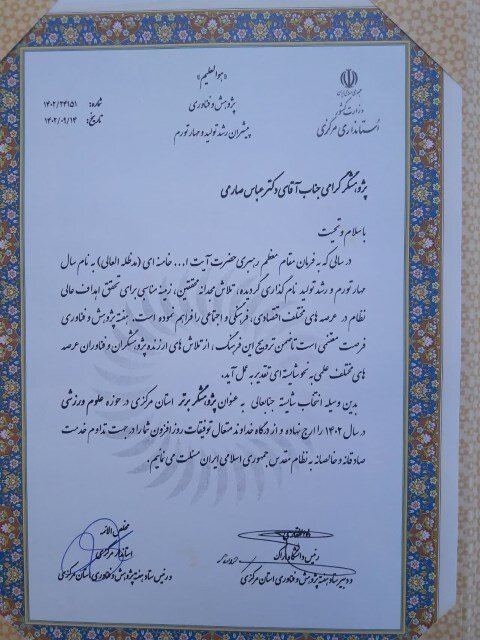 «هوالعظیم»
جمهوری اسلامی ایران
وزارت کشور
استانداری مرکزی
پژوهش و فناوری
پیشران رشد تولید و مهار تورم
شماره: ۱۴۰۲/۲۴۱۵۱
تاریخ: ۱۴۰۲/۰۹/۱۴
پژوهشگر گرامی جناب آقای دکتر عباس صارمی
با سلام و تحیت
در سالی که به فرمان مقام معظم رهبری حضرت آیت ا... خامنه ای (مدظله العالی) به نام سال
مهار تورم و رشد تولید نام گذاری گردیده، تلاش مجدانه محققین، زمینه مناسبی برای تحقق اهداف عالی
نظام در عرصه های مختلف اقتصادی، فرهنگی و اجتماعی را فراهم نموده است. هفته پژوهش و فناوری
فرصت مغتنمی است تا ضمن ترویج این فرهنگ، از تلاش های ارزنده پژوهشگران و فناوران عرصه
های مختلف علمی به نحو شایسته ای تقدیر به عمل آید.
بدین وسیله انتخاب شایسته جنابعالی به عنوان پژوهشگر برتر استان مرکزی در حوزه علوم ورزشی
در سال ۱۴۰۲ را ارج نهاده و از درگاه خداوند متعال توفیقات روزافزون شما را در جهت تداوم خدمت
صادقانه و خالصانه به نظام مقدس جمهوری اسلامی ایران مسئلت می نمائیم.
رئیس دانشگاه اراک
و دبیر ستاد هفته پژوهش و فناوری استان مرکزی
استاندار مرکزی
و رئیس ستاد هفته پژوهش و فناوری استان مرکزی